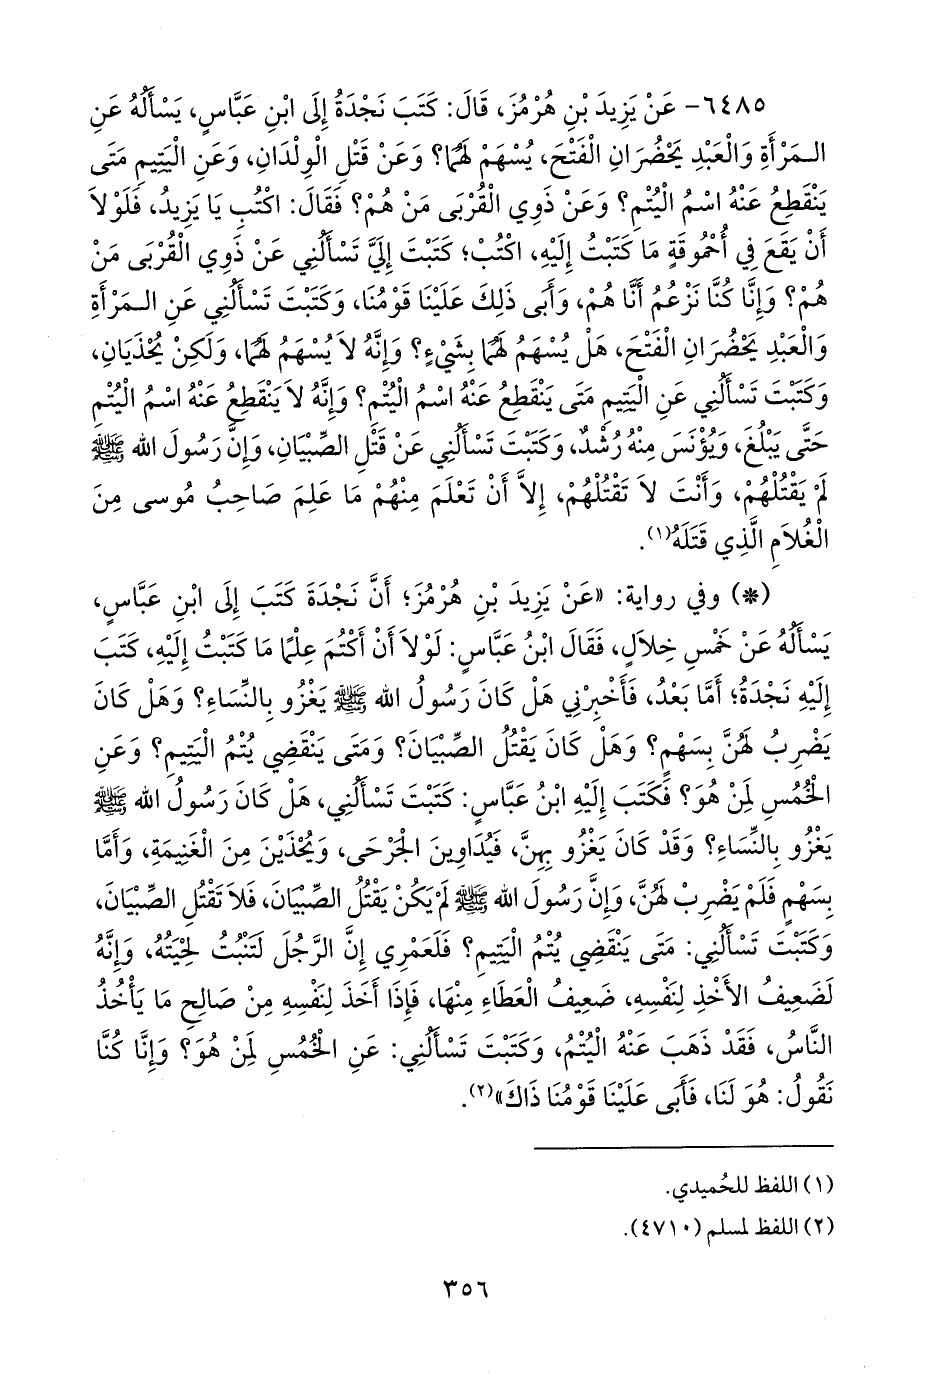 ٦٤٨٥- عَنْ يَزِيدَ بْنِ هُرْمُزَ، قَالَ: كَتَبَ نَجْدَةُ إِلَى ابْنِ عَبَّاسٍ، يَسْأَلُهُ عَنِ
الـمَرْأَةِ وَالْعَبْدِ يَحْضُرَانِ الْفَتْحَ، يُسْهَمُ لَهُمَا؟ وَعَنْ قَتْلِ الْوِلْدَانِ، وَعَنِ الْيَتِيمِ مَتَى
يَنْقَطِعُ عَنْهُ اسْمُ الْيُتْمِ؟ وَعَنْ ذَوِي الْقُرْبَى مَنْ هُمْ؟ فَقَالَ: اكْتُبِ يَا يَزِيدُ، فَلَوْلاَ
أَنْ يَقَعَ فِي أُحْمُوقَةٍ مَا كَتَبْتُ إِلَيْهِ، اكْتُبْ؛ كَتَبْتَ إِلَيَّ تَسْأَلُنِي عَنْ ذَوِي الْقُرْبَى مَنْ
هُمْ؟ وَإِنَّا كُنَّا نَزْعُمُ أَنَّا هُمْ، وَأَبَى ذَلِكَ عَلَيْنَا قَوْمُنَا، وَكَتَبْتَ تَسْأَلُنِي عَنِ الـمَرْأَةِ
وَالْعَبْدِ يَحْضُرَانِ الْفَتْحَ، هَلْ يُسْهَمُ لَهُمَا بِشَيْءٍ؟ وَإِنَّهُ لاَ يُسْهَمُ لَهُمَا، وَلَكِنْ يُحْذَيَانِ،
وَكَتَبْتَ تَسْأَلُنِي عَنِ الْيَتِيمِ مَتَى يَنْقَطِعُ عَنْهُ اسْمُ الْيُتْمِ؟ وَإِنَّهُ لاَ يَنْقَطِعُ عَنْهُ اسْمُ الْيُتْمِ
حَتَّى يَبْلُغَ، وَيُؤْنَسَ مِنْهُ رُشْدٌ، وَكَتَبْتَ تَسْأَلُنِي عَنْ قَتْلِ الصِّبْيَانِ، وَإِنَّ رَسُولَ الله ﷺ
لَمْ يَقْتُلْهُمْ، وَأَنْتَ لاَ تَقْتُلْهُمْ، إِلاَّ أَنْ تَعْلَمَ مِنْهُمْ مَا عَلِمَ صَاحِبُ مُوسى مِنَ
الْغُلاَمِ الَّذِي قَتَلَهُ(١).
(*) وفي رواية: «عَنْ يَزِيدَ بْنِ هُرْمُزَ؛ أَنَّ نَجْدَةَ كَتَبَ إِلَى ابْنِ عَبَّاسٍ،
يَسْأَلُهُ عَنْ خَمْسِ خِلاَلٍ، فَقَالَ ابْنُ عَبَّاسٍ: لَوْلاَ أَنْ أَكْتُمَ عِلْمًا مَا كَتَبْتُ إِلَيْهِ، كَتَبَ
إِلَيْهِ نَجْدَةُ؛ أَمَّا بَعْدُ، فَأَخْبِرْنِي هَلْ كَانَ رَسُولُ الله ﷺ يَغْزُو بِالنِّسَاءِ؟ وَهَلْ كَانَ
يَضْرِبُ لَهُنَّ بِسَهْمٍ؟ وَهَلْ كَانَ يَقْتُلُ الصِّبْيَانَ؟ وَمَتَى يَنْقَضِي يُتْمُ الْيَتِيمِ؟ وَعَنِ
الْخُمُسِ لِمَنْ هُوَ؟ فَكَتَبَ إِلَيْهِ ابْنُ عَبَّاسٍ: كَتَبْتَ تَسْأَلُنِي، هَلْ كَانَ رَسُولُ الله ﷺ
يَغْزُو بِالنِّسَاءِ؟ وَقَدْ كَانَ يَغْزُو بِهِنَّ، فَيُدَاوِينَ الْجَرْحَى، وَيُحْذَيْنَ مِنَ الْغَنِيمَةِ، وَأَمَّا
بِسَهْمٍ فَلَمْ يَضْرِبْ لَهُنَّ، وَإِنَّ رَسُولَ الله ﷺ لَمْ يَكُنْ يَقْتُلُ الصِّبْيَانَ، فَلاَ تَقْتُلِ الصِّبْيَانَ،
وَكَتَبْتَ تَسْأَلُنِي: مَتَى يَنْقَضِي يُتْمُ الْيَتِيمِ؟ فَلَعَمْرِي إِنَّ الرَّجُلَ لَتَنْبُتُ لِحْيَتُهُ، وَإِنَّهُ
لَضَعِيفُ الأَخْذِ لِنَفْسِهِ، ضَعِيفُ الْعَطَاءِ مِنْهَا، فَإِذَا أَخَذَ لِنَفْسِهِ مِنْ صَالِحِ مَا يَأْخُذُ
النَّاسُ، فَقَدْ ذَهَبَ عَنْهُ الْيُتْمُ، وَكَتَبْتَ تَسْأَلُنِي: عَنِ الْخُمُسِ لِمَنْ هُوَ؟ وَإِنَّا كُنَّا
نَقُولُ: هُوَ لَنَا، فَأَبَى عَلَيْنَا قَوْمُنَا ذَاكَ»(٢).
(١) اللفظ للحُميدي.
(٢) اللفظ لمسلم (٤٧١٠).
٣٥٦